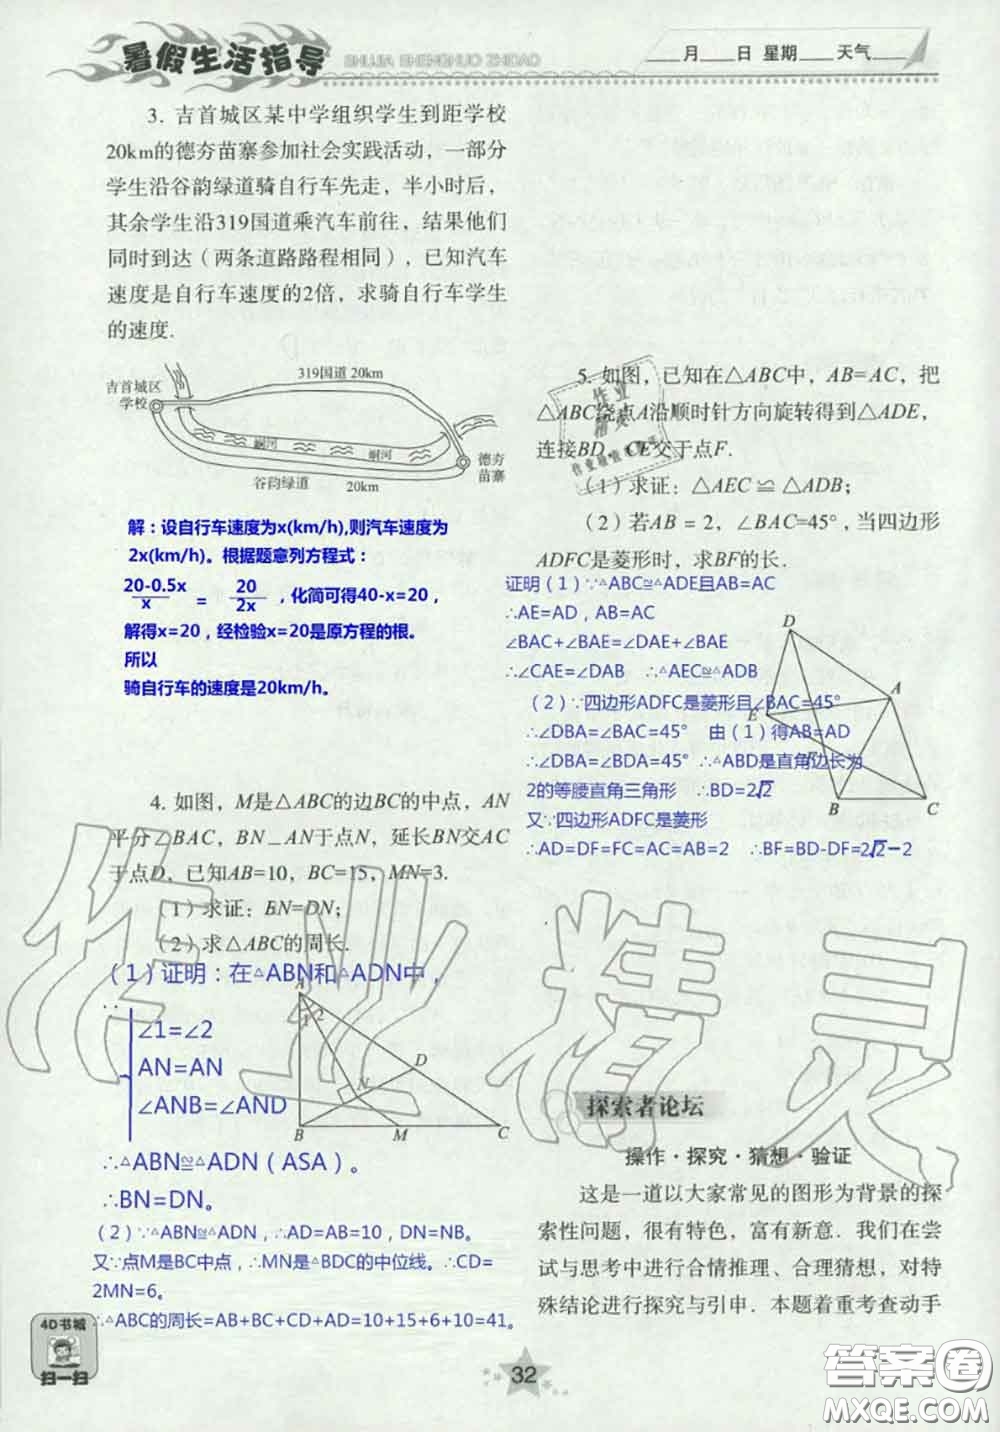 暑假生活指导 SHUJIA SHENGHUO ZHIDAO
___月___日 星期___天气___
3. 吉首城区某中学组织学生到距学校
20km的德夯苗寨参加社会实践活动，一部分
学生沿谷韵绿道骑自行车先走，半小时后，
其余学生沿319国道乘汽车前往，结果他们
同时到达（两条道路路程相同），已知汽车
速度是自行车速度的2倍，求骑自行车学生
的速度.
吉首城区
学校
319国道 20km
峒河
峒河
德夯
苗寨
谷韵绿道 20km
解：设自行车速度为x(km/h),则汽车速度为
2x(km/h)。根据题意列方程式：
20-0.5x/x = 20/2x ，化简可得40-x=20，
解得x=20，经检验x=20是原方程的根。
所以
骑自行车的速度是20km/h。
4. 如图，M是△ABC的边BC的中点，AN
平分∠BAC，BN⊥AN于点N，延长BN交AC
于点D，已知AB=10，BC=15，MN=3.
（1）求证：BN=DN；
（2）求△ABC的周长.
（1）证明：在△ABN和△ADN中，
∵
∠1=∠2
AN=AN
∠ANB=∠AND
∴△ABN≅△ADN（ASA）。
∴BN=DN。
A
1 2
D
N
B M C
（2）∵△ABN≅△ADN，∴AD=AB=10，DN=NB。
又∵点M是BC中点，∴MN是△BDC的中位线。∴CD=
2MN=6。
∴△ABC的周长=AB+BC+CD+AD=10+15+6+10=41。
5. 如图，已知在△ABC中，AB=AC，把
△ABC绕点A沿顺时针方向旋转得到△ADE，
连接BD，CE交于点F.
（1）求证：△AEC ≌ △ADB；
（2）若AB = 2，∠BAC=45°，当四边形
ADFC是菱形时，求BF的长.
证明（1）∵△ABC≅△ADE且AB=AC
∴AE=AD，AB=AC
∠BAC+∠BAE=∠DAE+∠BAE
∴∠CAE=∠DAB ∴△AEC≅△ADB
（2）∵四边形ADFC是菱形且∠BAC=45°
∴∠DBA=∠BAC=45° 由（1）得AB=AD
∴∠DBA=∠BDA=45° ∴△ABD是直角边长为
2的等腰直角三角形 ∴BD=2√2
又∵四边形ADFC是菱形
∴AD=DF=FC=AC=AB=2 ∴BF=BD-DF=2√2-2
D
A
E
F
B C
探索者论坛
操作·探究·猜想·验证
这是一道以大家常见的图形为背景的探
索性问题，很有特色，富有新意. 我们在尝
试与思考中进行合情推理、合理猜想，对特
殊结论进行探究与引申. 本题着重考查动手
4D书城
扫一扫
32
作业精灵
答案圈
MXQE.COM